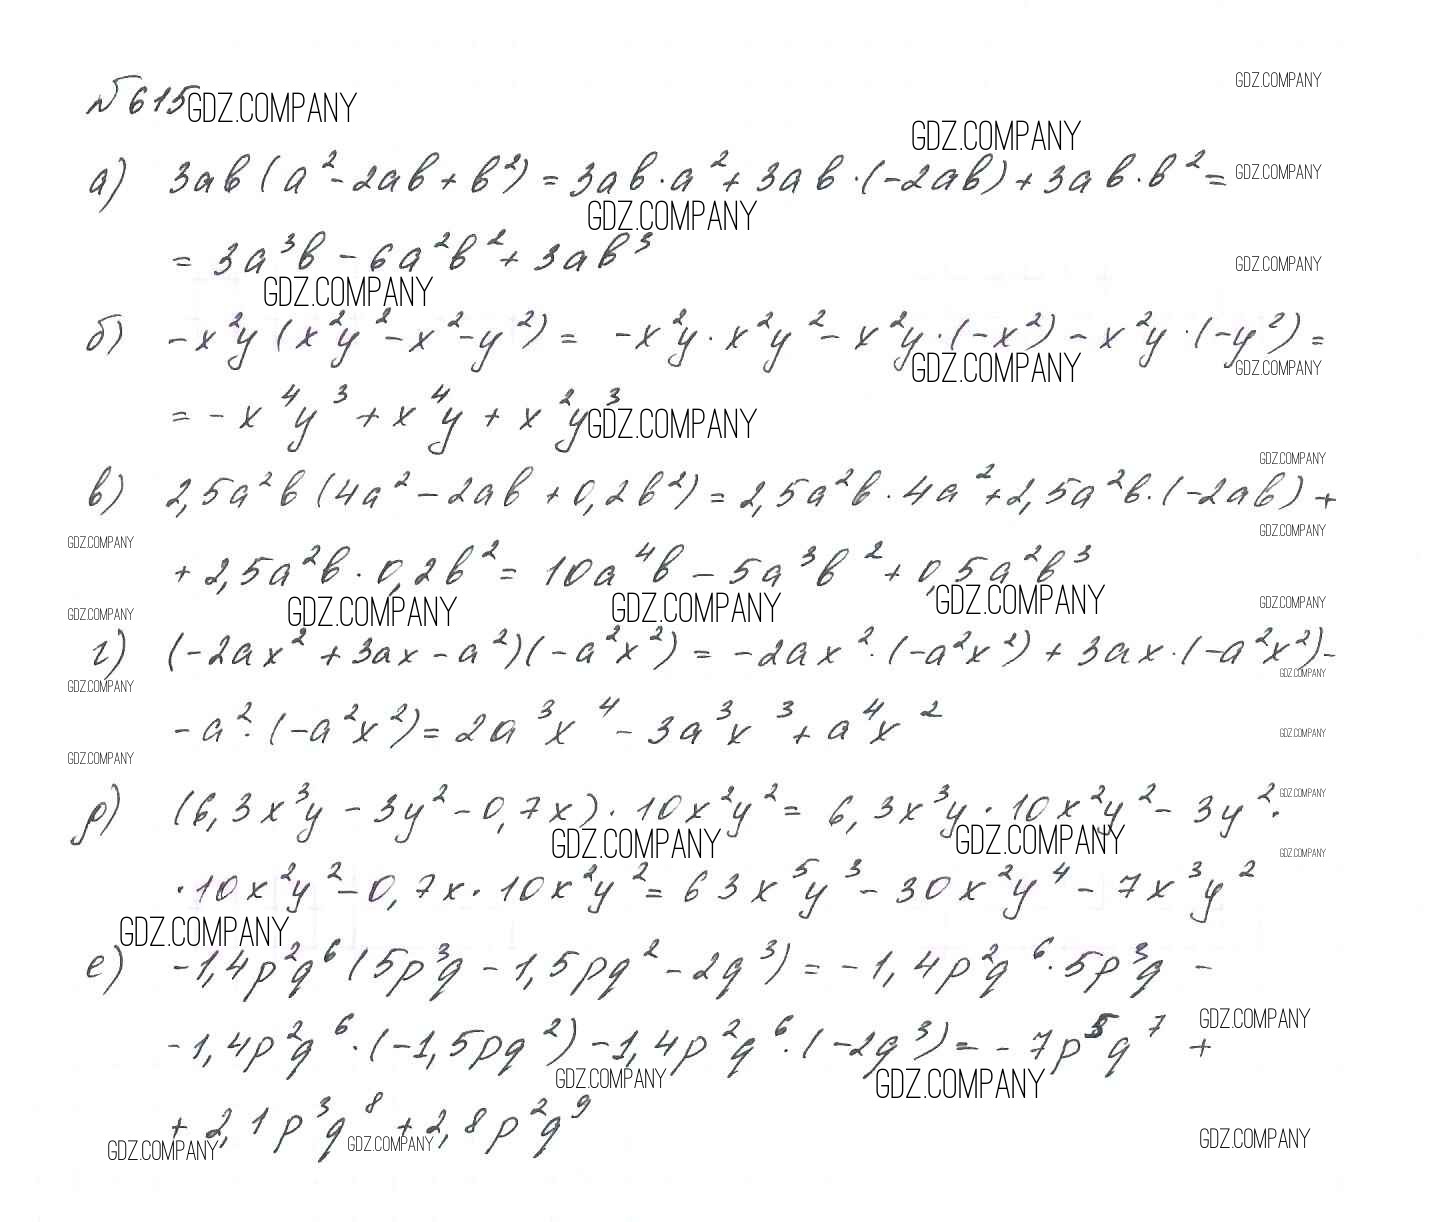 № 615 GDZ.COMPANY
GDZ.COMPANY
GDZ.COMPANY
а) 3ab(a² - 2ab + b²) = 3ab·a² + 3ab·(-2ab) + 3ab·b² = GDZ.COMPANY
GDZ.COMPANY
= 3a³b - 6a²b² + 3ab³
GDZ.COMPANY
GDZ.COMPANY
б) -x²y(x²y² - x² - y²) = -x²y·x²y² - x²y·(-x²) - x²y·(-y²) =
GDZ.COMPANY GDZ.COMPANY
= -x⁴y³ + x⁴y + x²y³ GDZ.COMPANY
GDZ.COMPANY
в) 2,5a²b(4a² - 2ab + 0,2b²) = 2,5a²b·4a² + 2,5a²b·(-2ab) +
GDZ.COMPANY GDZ.COMPANY
+ 2,5a²b·0,2b² = 10a⁴b - 5a³b² + 0,5a²b³
GDZ.COMPANY GDZ.COMPANY GDZ.COMPANY GDZ.COMPANY GDZ.COMPANY
г) (-2ax² + 3ax - a²)(-a²x²) = -2ax²·(-a²x²) + 3ax·(-a²x²) -
GDZ.COMPANY GDZ.COMPANY
- a²·(-a²x²) = 2a³x⁴ - 3a³x³ + a⁴x² GDZ.COMPANY
GDZ.COMPANY
д) (6,3x³y - 3y² - 0,7x)·10x²y² = 6,3x³y·10x²y² - 3y²· GDZ.COMPANY
GDZ.COMPANY GDZ.COMPANY GDZ.COMPANY
·10x²y² - 0,7x·10x²y² = 63x⁵y³ - 30x²y⁴ - 7x³y²
GDZ.COMPANY
е) -1,4p²q⁶(5p³q - 1,5pq² - 2q³) = -1,4p²q⁶·5p³q -
GDZ.COMPANY
- 1,4p²q⁶·(-1,5pq²) - 1,4p²q⁶·(-2q³) = -7p⁵q⁷ +
GDZ.COMPANY GDZ.COMPANY
+ 2,1p³q⁸ + 2,8p²q⁹
GDZ.COMPANY GDZ.COMPANY GDZ.COMPANY